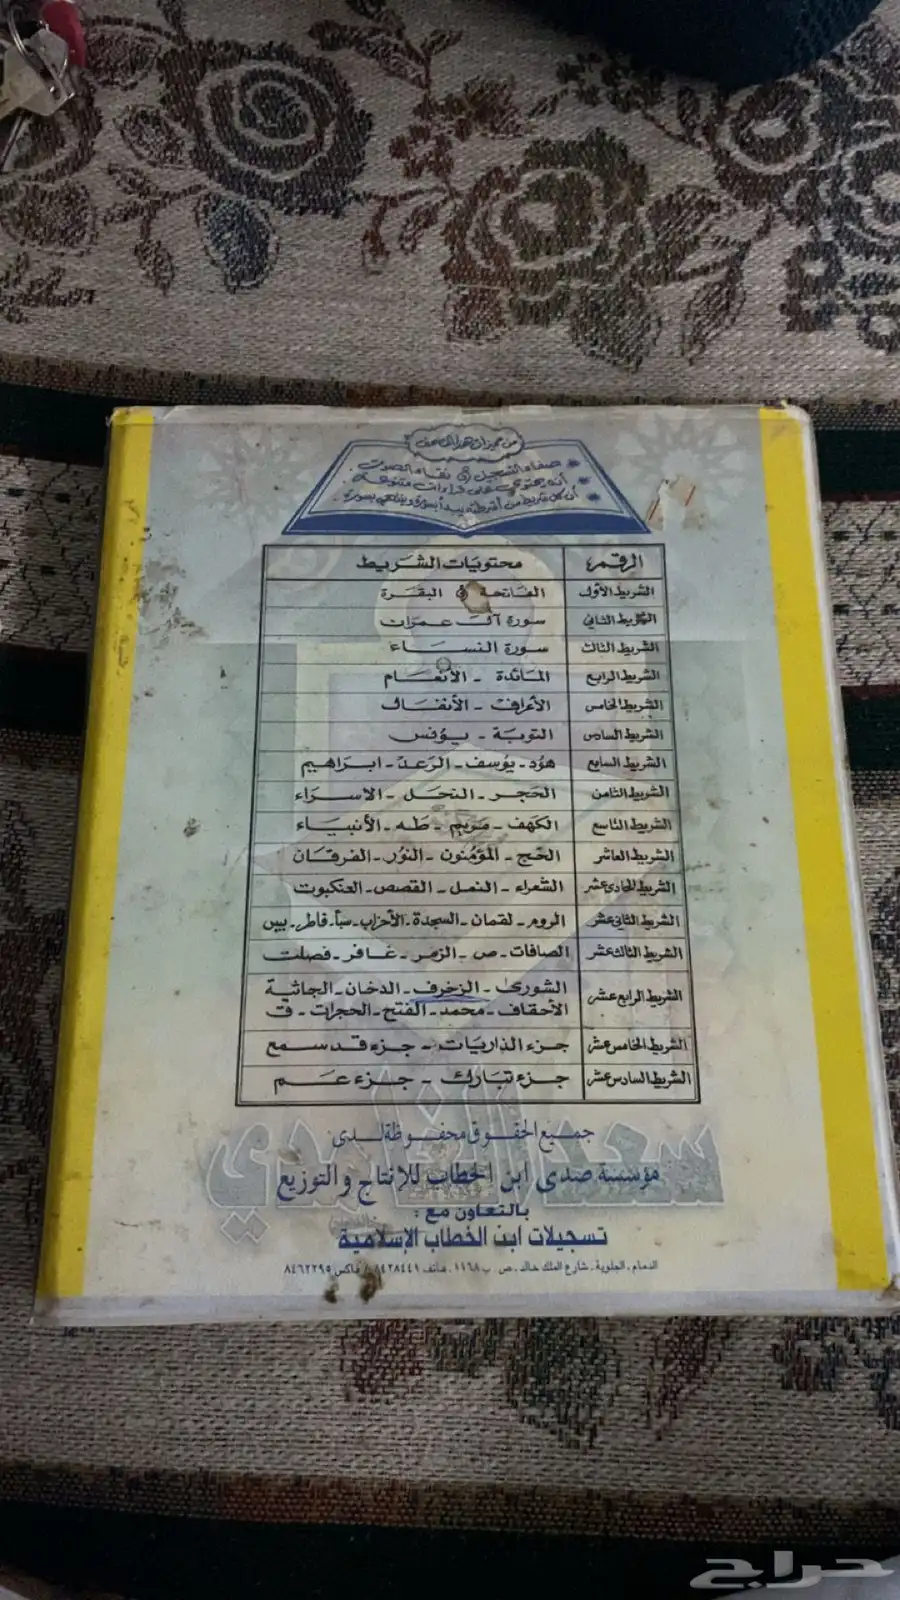 من مميزات هذا المصحف
* صفاء التسجيل و نقاء الصوت
* أنه يحتوي على قراءات متنوعة
* أن كل شريط من أشرطته يبدأ بسورة وينتهي بسورة
الرقم محتويات الشريط
الشريط الأول الفاتحة و البقرة
الشريط الثاني سورة آل عمران
الشريط الثالث سورة النساء
الشريط الرابع المائدة - الأنعام
الشريط الخامس الأعراف - الأنفال
الشريط السادس التوبة - يونس
الشريط السابع هود - يوسف - الرعد - ابراهيم
الشريط الثامن الحجر - النحل - الاسراء
الشريط التاسع الكهف - مريم - طه - الأنبياء
الشريط العاشر الحج - المؤمنون - النور - الفرقان
الشريط الحادي عشر الشعراء - النمل - القصص - العنكبوت
الشريط الثاني عشر الروم - لقمان - السجدة - الأحزاب - سبأ - فاطر - يس
الشريط الثالث عشر الصافات - ص - الزمر - غافر - فصلت
الشريط الرابع عشر الشورى - الزخرف - الدخان - الجاثية
الأحقاف - محمد - الفتح - الحجرات - ق
الشريط الخامس عشر جزء الذاريات - جزء قد سمع
الشريط السادس عشر جزء تبارك - جزء عم
سعد الغامدي
جميع الحقوق محفوظة لدى
مؤسسة صدى ابن الخطاب للإنتاج والتوزيع
بالتعاون مع :
تسجيلات ابن الخطاب الإسلامية
الدمام . الجلوية . شارع الملك خالد . ص . ب ١١٦٨ . هاتف ٨٤٢٨٤٤١ / فاكس ٨٤٦٢٢٩٥
حراج